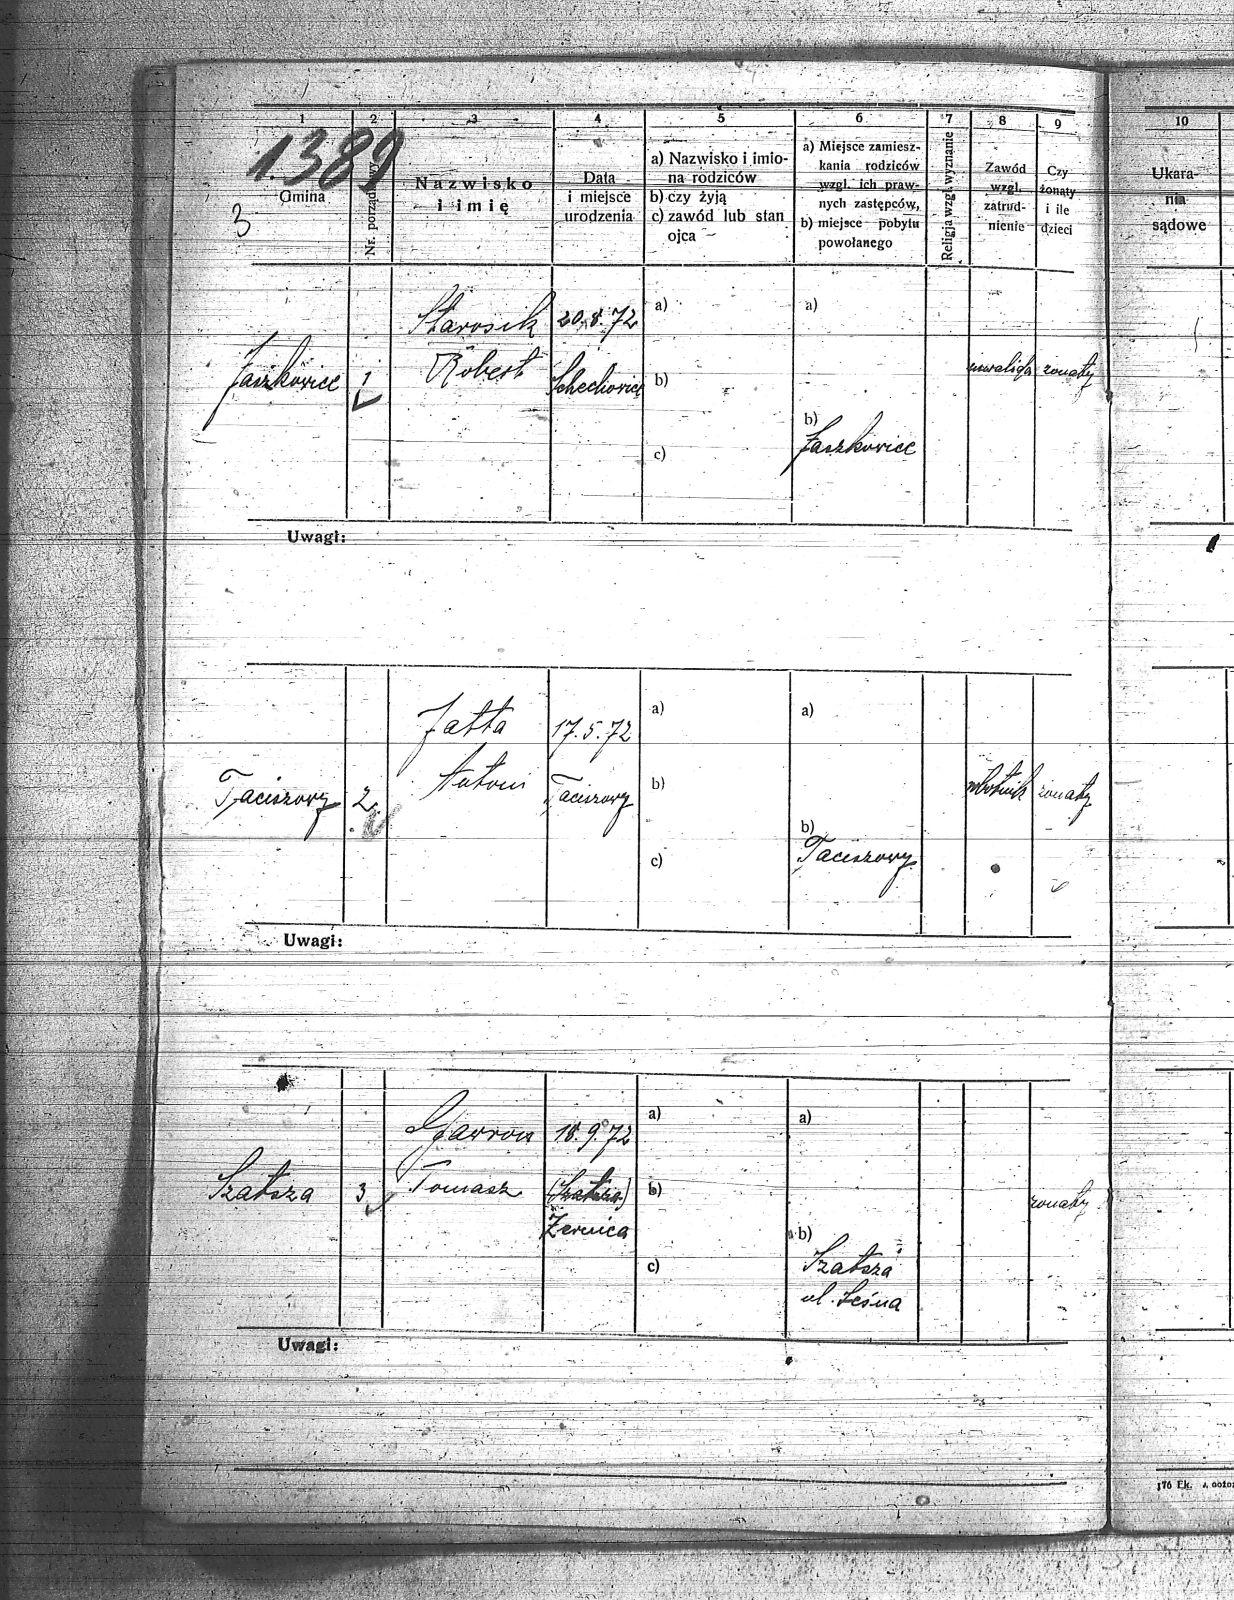 1 2 3 4 5 6 7 8 9 10
1.389
3
Gmina
Nr. porządkowy
Nazwisko
i imię
Data
i miejsce
urodzenia
a) Nazwisko i imio-
na rodziców
b) czy żyją
c) zawód lub stan
ojca
a) Miejsce zamiesz-
kania rodziców
wzgl. ich praw-
nych zastępców,
b) miejsce pobytu
powołanego
Religja wzgl. wyznanie
Zawód
wzgl.
zatrud-
nienie
Czy
żonaty
i ile
dzieci
Ukara-
nia
sądowe
Jaszkowice
1
Starosik
Robert
20.8.72
Schechowice
a)
b)
c)
a)
b)
Jaszkowice
inwalida
żonaty
Uwagi:
Taciszowy
2.
Jatta
Antoni
17.5.72
Taciszowy
a)
b)
c)
a)
b)
Taciszowy
młotnik
żonaty
Uwagi:
Szatsza
3
Gawron
Tomasz
18.9.72
(Szatsza)
Żernica
a)
b)
c)
a)
b)
Szatsza
ul. Leśna
żonaty
Uwagi: